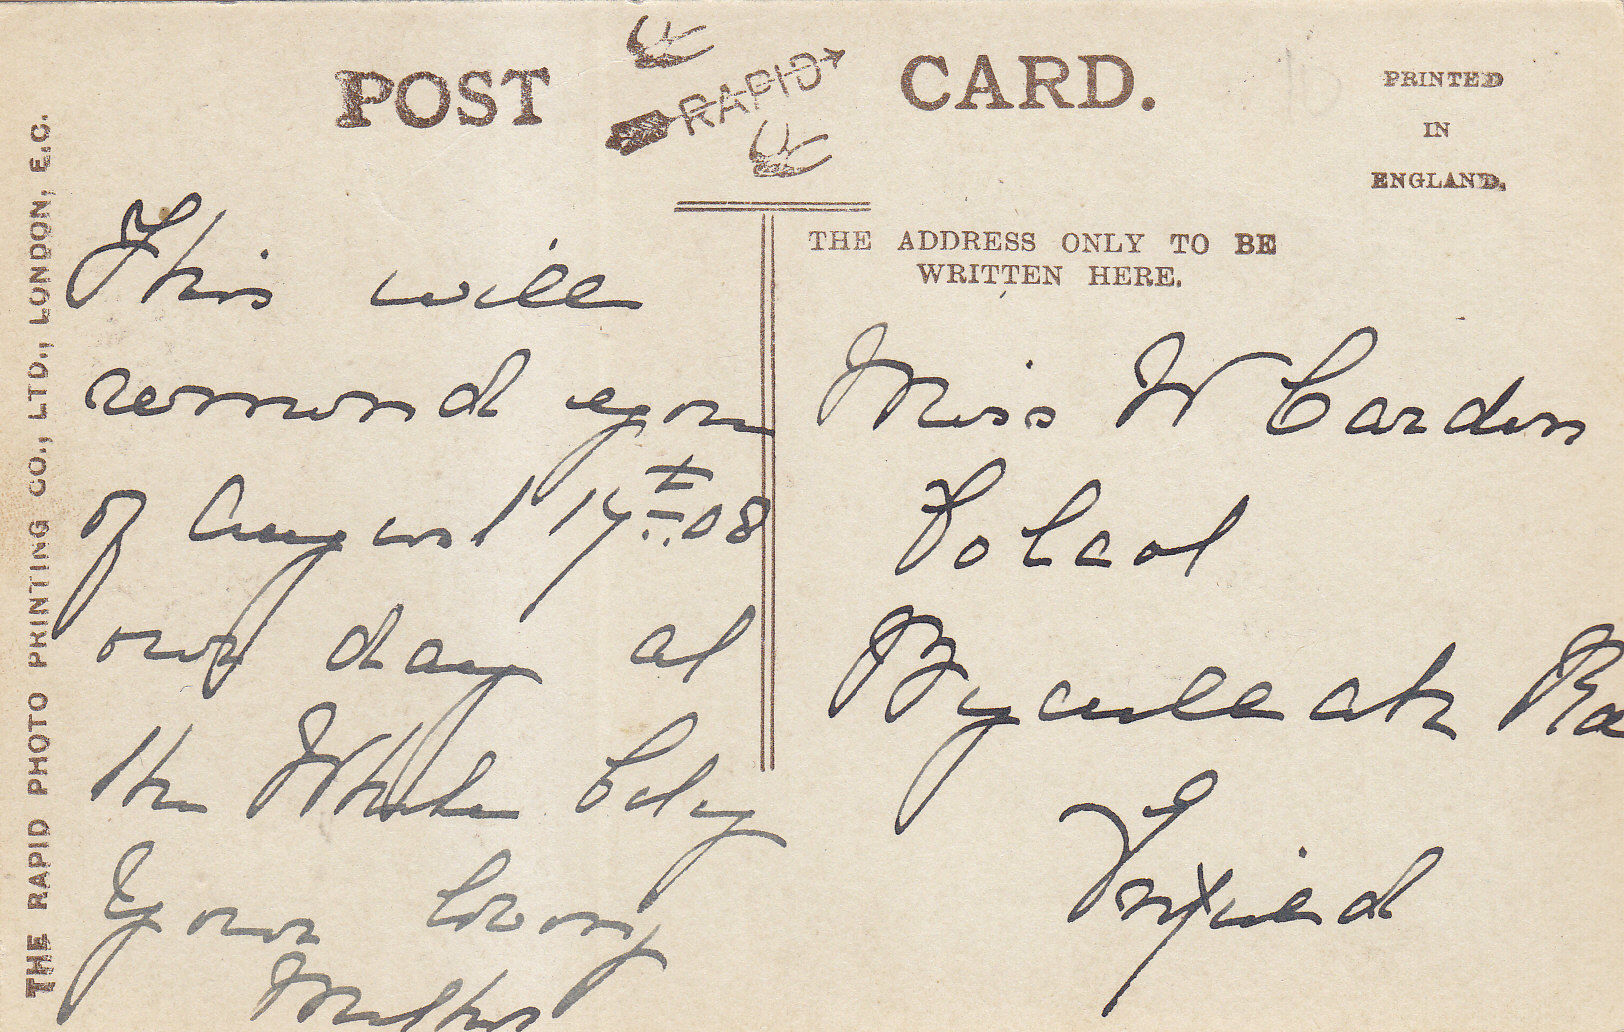 POST CARD.
RAPID
PRINTED
IN
ENGLAND.
THE ADDRESS ONLY TO BE
WRITTEN HERE.
THE RAPID PHOTO PRINTING CO., LTD., LONDON, E.C.
This will
remind you
of August 17th 08
our day at
the White City
Your loving
Mother
Miss W Carden
Bycullah Ro
Enfield